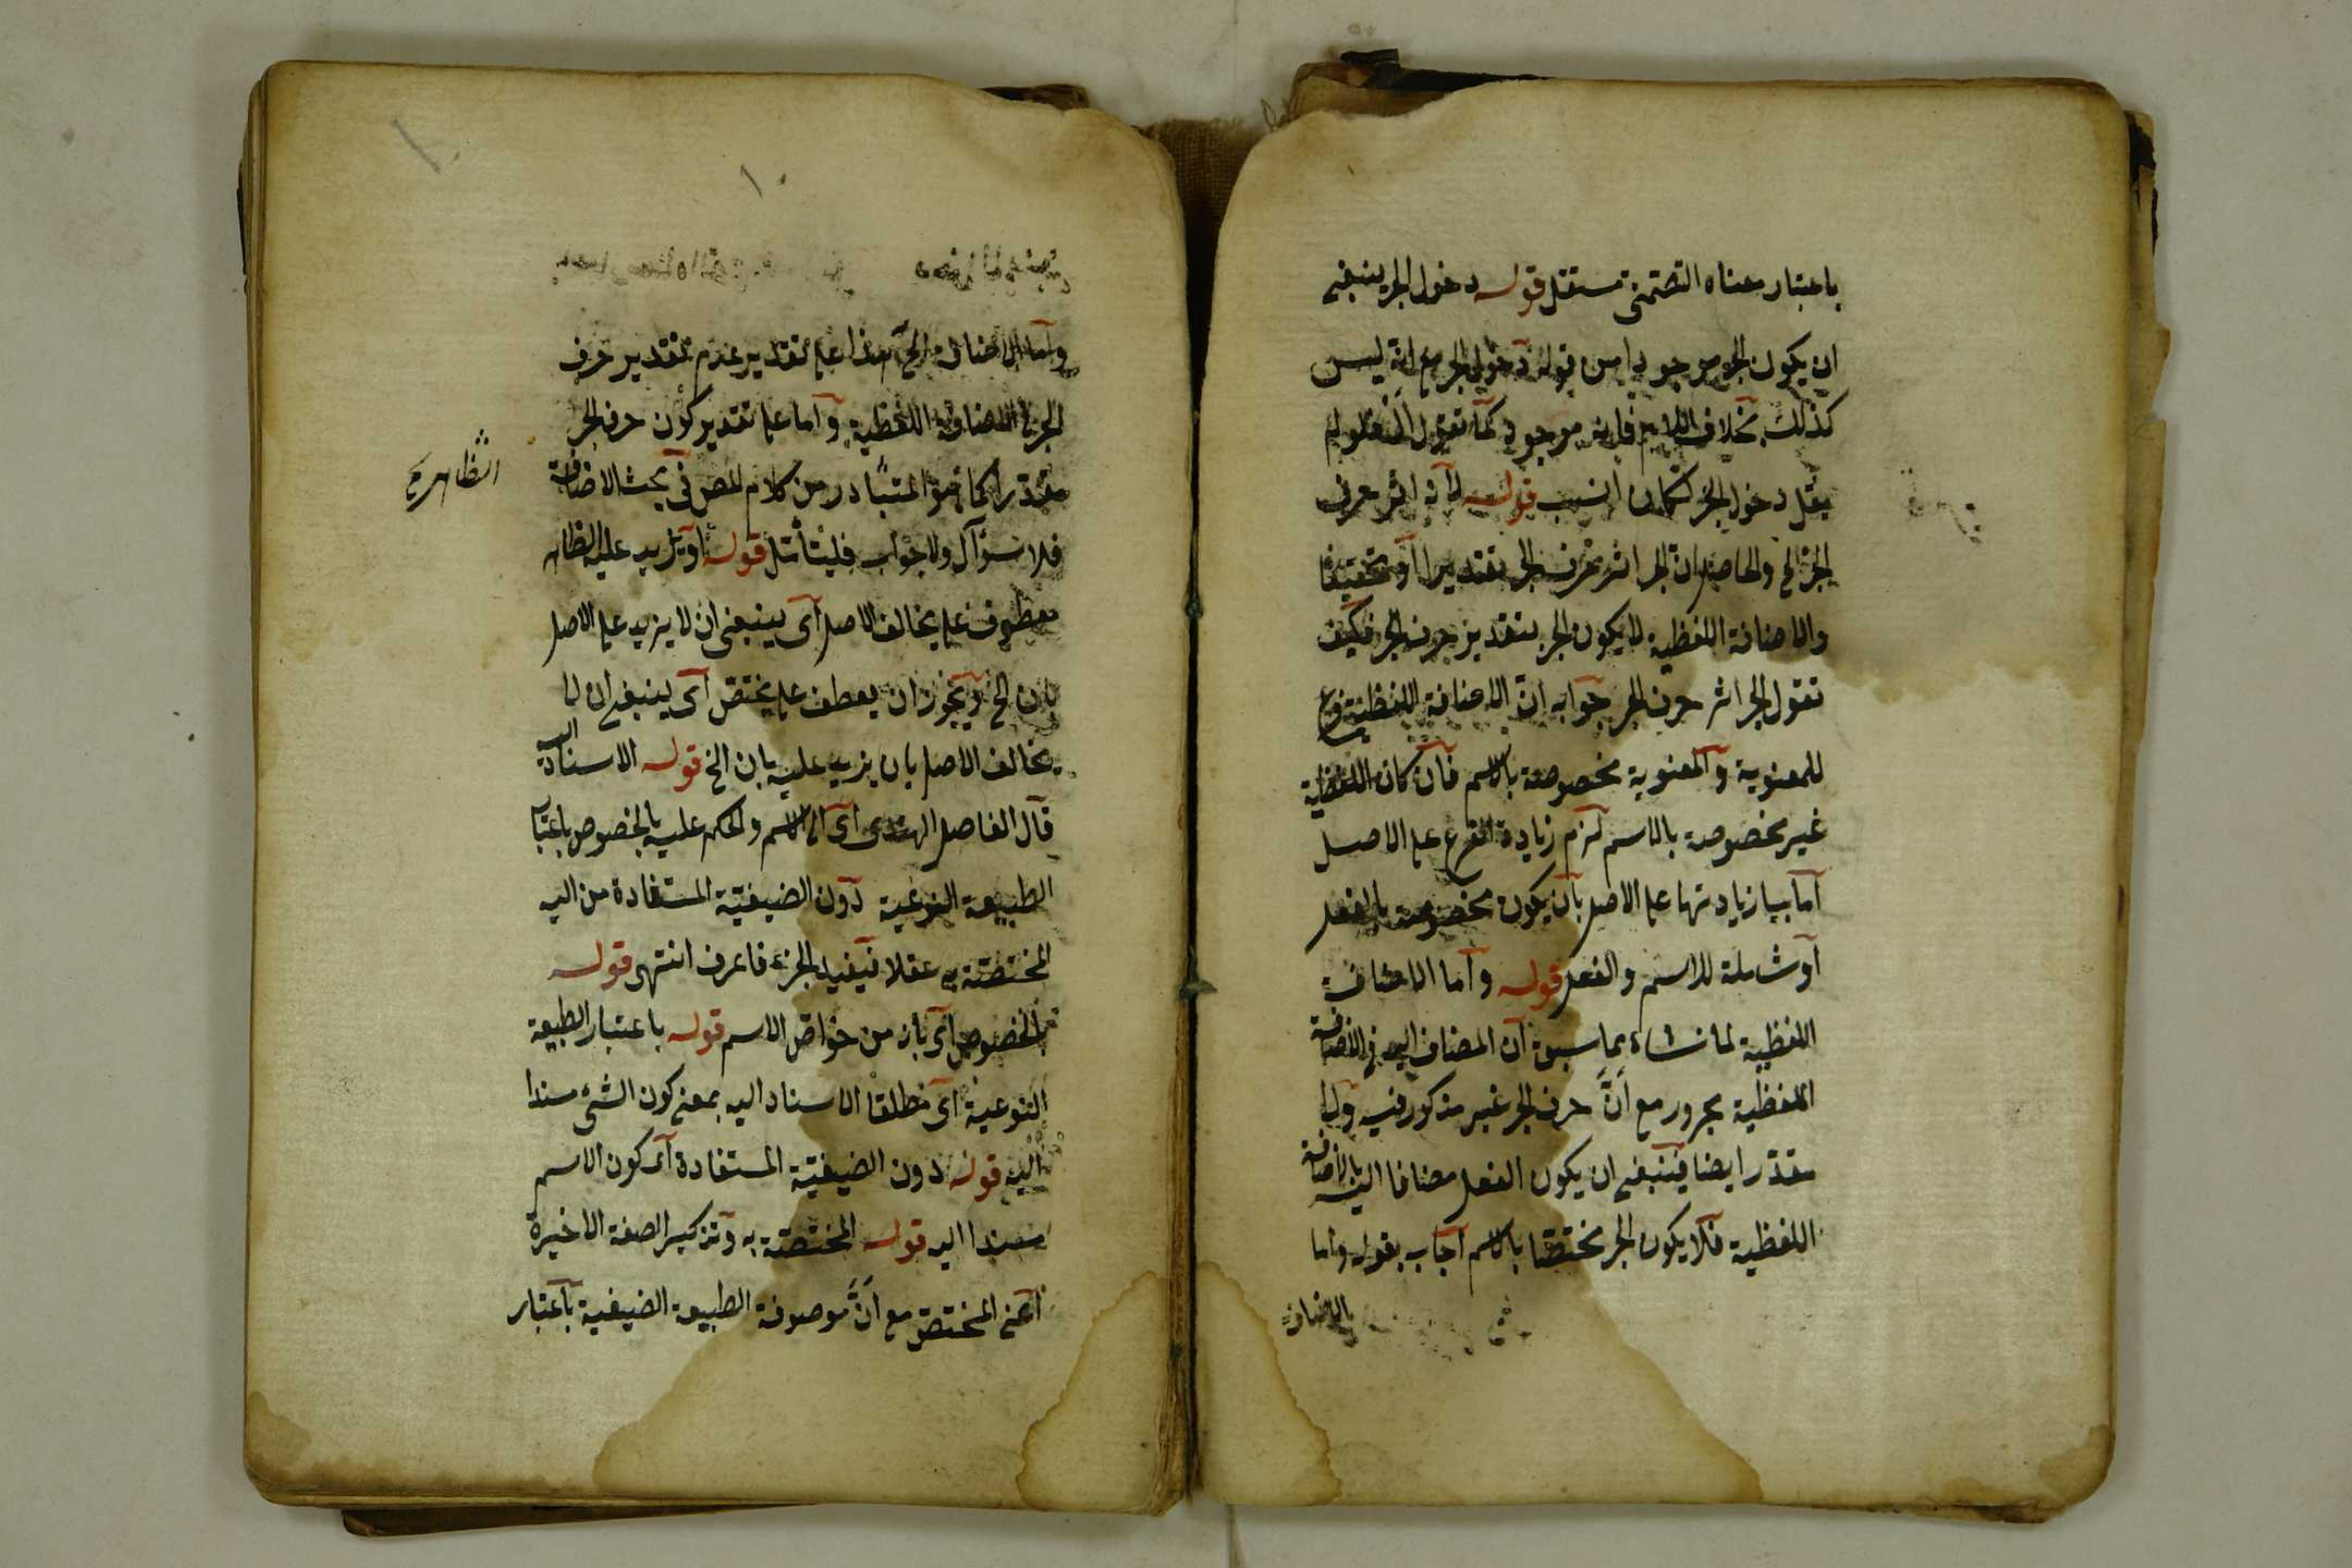 باعتبار معناه التضمنى مستقل قوله دخول الجر ينبغى
ان يكون الجر موجودا من قوله دخول الجر مع انه ليس
كذلك بخلاف اللام فانه موجود كما تقول
يقل دخول الجر لكان انسب قوله لانه اثر حرف
الجر الخ والحاصل ان الجر اثر حرف الجر تقديرا او تحقيقا
والاضافة اللفظية لا يكون الجر بتقدير حرف الجر فكيف
تقول الجر اثر حرف الجر جوابه ان الاضافة اللفظية فرع
للمعنوية والمعنوية مخصوصة بالاسم فان كان اللفظية
غير مخصوصة بالاسم لزم زيادة الفرع على الاصل
اما زيادتها على الاصل بان يكون مخصوصة بالفعل
او شاملة للاسم والفعل قوله واما الاضافة
اللفظية لما نشاء مما سبق ان المضاف اليه فى الاضافة
اللفظية مجرور مع ان حرف الجر غير مذكور فيه ولا
مقدر ايضا فينبغى ان يكون الفعل مضافا اليه بالاضافة
اللفظية فلا يكون الجر مختصا بالاسم اجاب بقوله واما
بالاضافة
١٠
واما الاضافة الخ هذا على تقدير عدم تقدير حرف
الجر فى الاضافة اللفظية واما على تقدير كون حرف الجر
مقدرا كما هو المتبادر من كلام المص فى بحث الاضافة
الظاهرة
فلا سؤال ولا جواب فليتأمل قوله او يزيد عليه الظاهر
معطوف على يخالف الاصل اى ينبغى ان لا يزيد على الاصل
بان الخ ويجوز ان يعطف على يختص اى ينبغى ان لا
يخالف الاصل بان يزيد عليه بان الخ قوله الاسناد اليه
قال الفاضل الهندى اى الى الاسم والحكم عليه بالخصوص باعتبار
الطبيعة النوعية دون الضيفية المستفادة من اليه
المختصة به عقلا فيفيد الجزء فاعرف انتهى قوله
بالخصوص اى بان من خواص الاسم قوله باعتبار الطبيعة
النوعية اى مطلقا الاسناد اليه بمعنى كون الشئ مسندا
اليه قوله دون الضيفية المستفادة اى كون الاسم
مسندا اليه قوله المختصة به وتذكير الصفة الاخيرة
اعنى المختص مع ان موصوفه الطبيعة الضيفية باعتبار